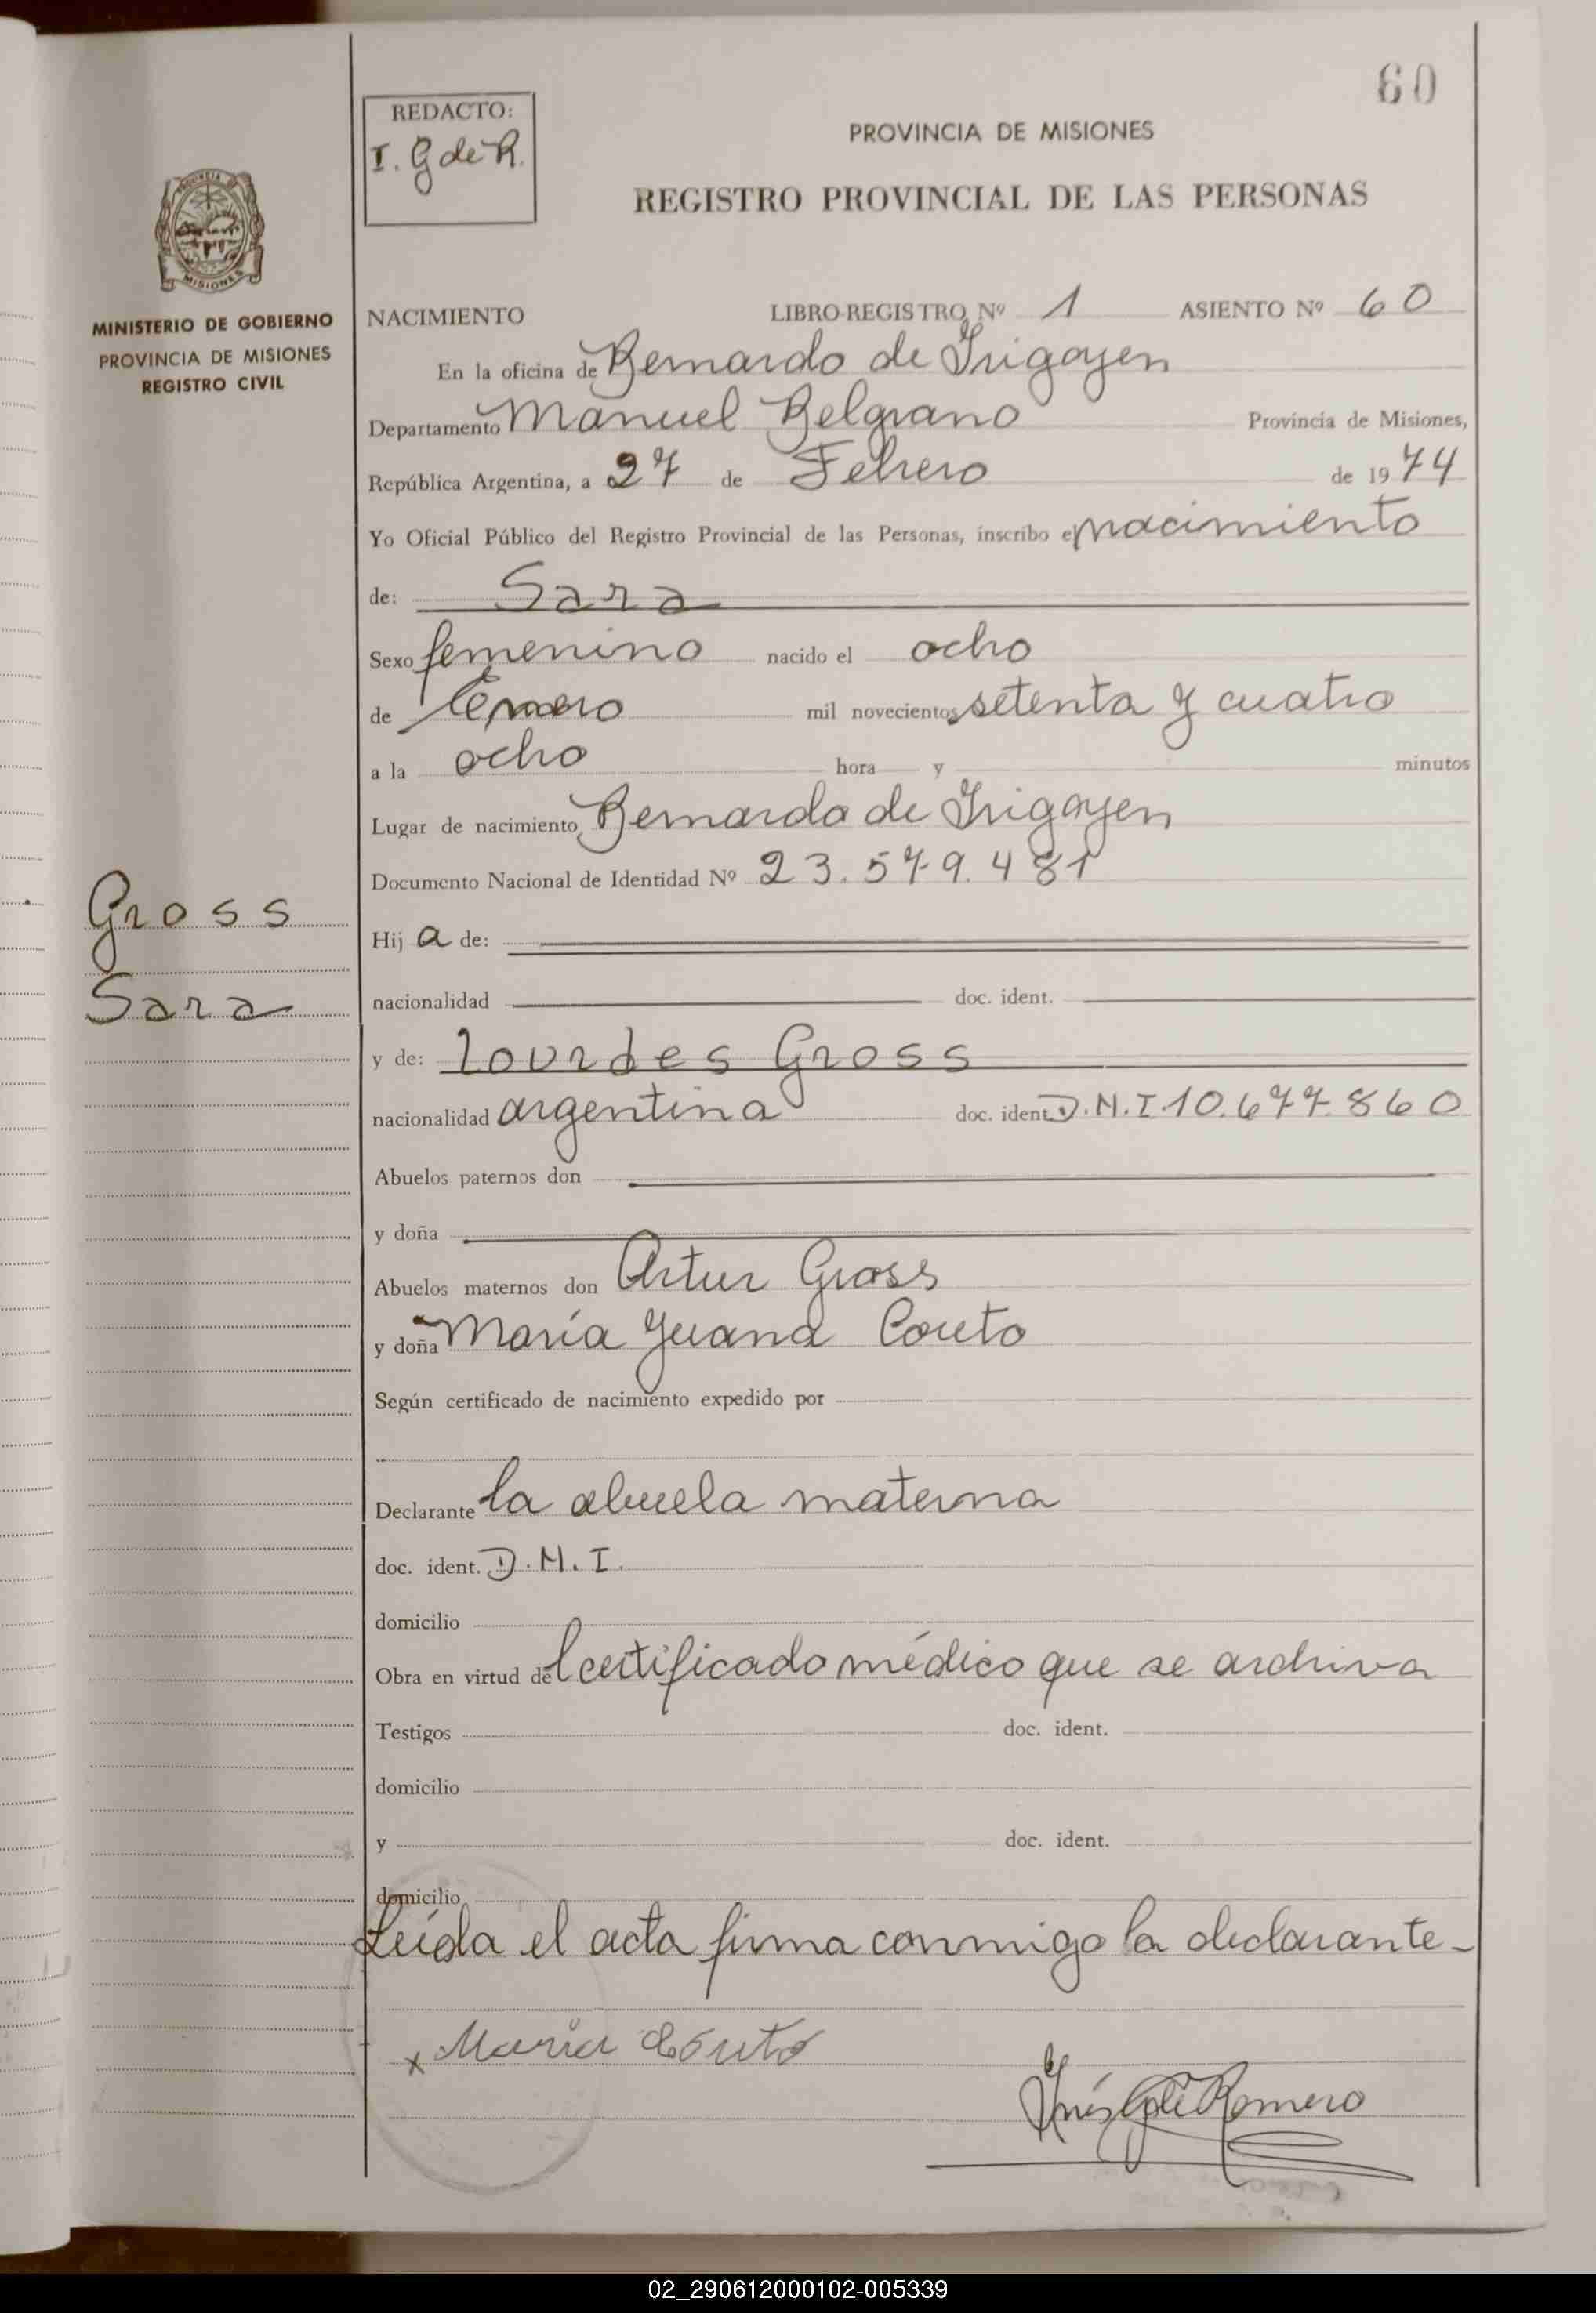 60
REDACTO:
I. G de R.
PROVINCIA DE MISIONES
REGISTRO PROVINCIAL DE LAS PERSONAS
MISIONES
MINISTERIO DE GOBIERNO
PROVINCIA DE MISIONES
REGISTRO CIVIL
NACIMIENTO LIBRO-REGISTRO Nº 1 ASIENTO Nº 60
En la oficina de Bernardo de Irigoyen
Departamento Manuel Belgrano Provincia de Misiones,
República Argentina, a 27 de Febrero de 1974
Yo Oficial Público del Registro Provincial de las Personas, inscribo el nacimiento
de: Sara
Sexo femenino nacido el ocho
de Enero mil novecientos setenta y cuatro
a la ocho hora y minutos
Lugar de nacimiento Bernardo de Irigoyen
Documento Nacional de Identidad Nº 23.579.481
Gross
Sara
Hija de:
nacionalidad doc. ident.
y de: Lourdes Gross
nacionalidad argentina doc. ident. D.N.I. 10.677.860
Abuelos paternos don
y doña
Abuelos maternos don Artur Gross
y doña María Juana Couto
Según certificado de nacimiento expedido por
Declarante la abuela materna
doc. ident. D.N.I.
domicilio
Obra en virtud del certificado médico que se archiva
Testigos doc. ident.
domicilio
y doc. ident.
domicilio
Leída el acta firma conmigo la declarante-
x Maria Couto
Inés G de Romero
02_290612000102-005339